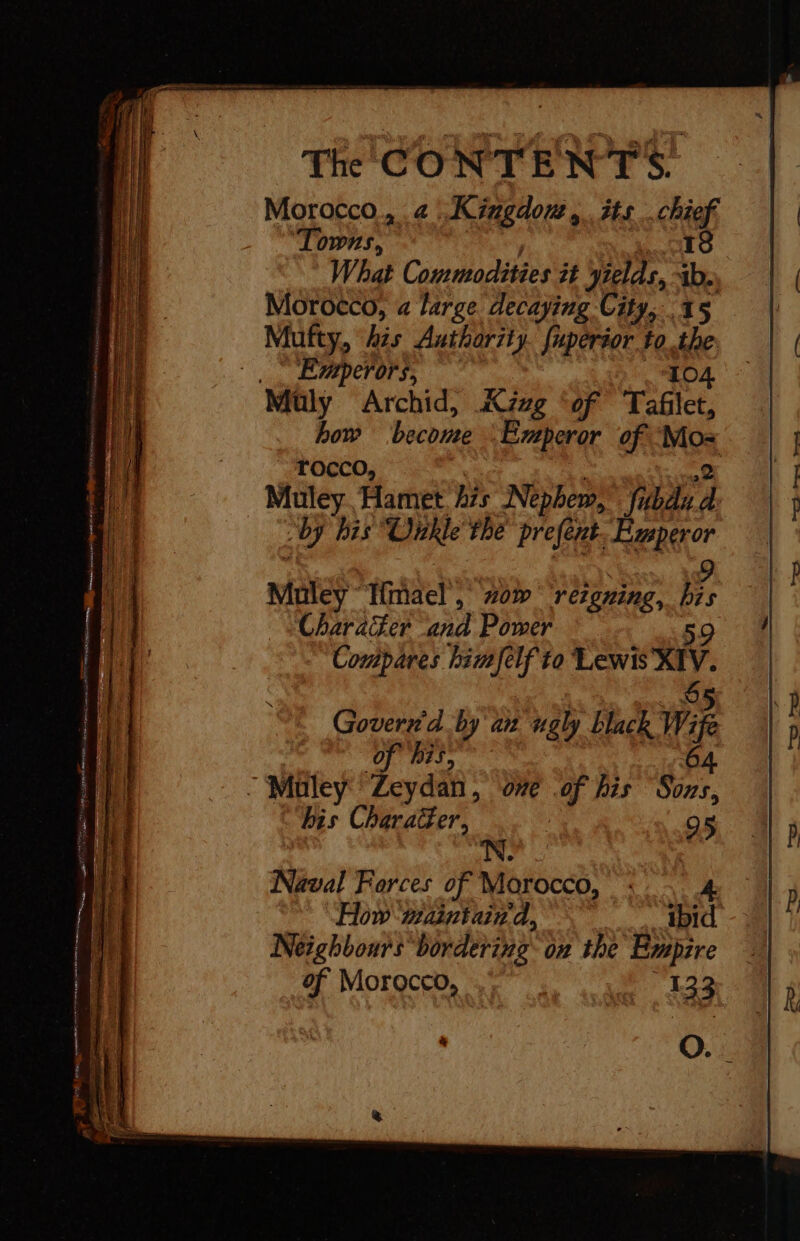 The CONTENTS.
Morocco, a Kingdom, its chief
Towns, 18
What Commodities it yields, ib.
Morocco, a large decaying City, 15
Mufty, his Authority ſuperior to the
Emperors, 104
Muly Archid, King of Tafilet,
how become Emperor of Mo-
rocco, 2
Muley Hamet his Nephew, ſubdu'd
by his Unkle the preſent Emperor
9
Muley Iſmael, now reigning, his
Character and Power 59
Compares himſelf to Lewis XIV.
65
Govern'd by an ugly black Wife
of his, 64
Muley Zeydan, one of his Sons,
his Character, 95
N.
Naval Forces of Morocco, 4
How maintain'd, ibid
Neighbours bordering on the Empire
of Morocco, 133
O.